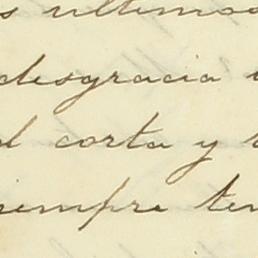 s ultimos
desgracia
corta y
siempre